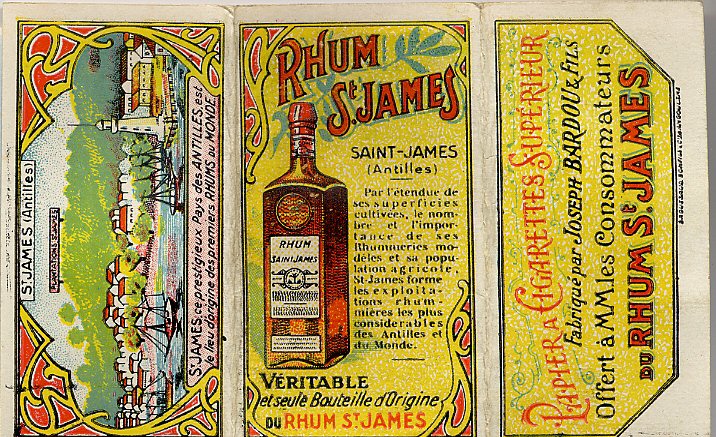 ST JAMES (Antilles)
PLANTATIONS ST JAMES
ST JAMES, ce prestigieux Pays des ANTILLES, est
le lieu d'origine des premiers RHUMS du MONDE
RHUM
ST. JAMES
SAINT-JAMES
(Antilles)
Par l'étendue de
ses superficies
cultivées, le nom-
bre et l'impor-
tance de ses
Rhummeries mo-
dèles et sa popu-
lation agricole,
St-James forme
les exploita-
tions rhum-
mières les plus
considérables
des Antilles et
du Monde.
RHUM
SAINT JAMES
VÉRITABLE
et seule Bouteille d'Origine
DU RHUM ST JAMES
PAPIER A CIGARETTES SUPÉRIEUR
Fabriqué par JOSEPH BARDOU & FILS
Offert à MM. les Consommateurs
DU RHUM ST. JAMES